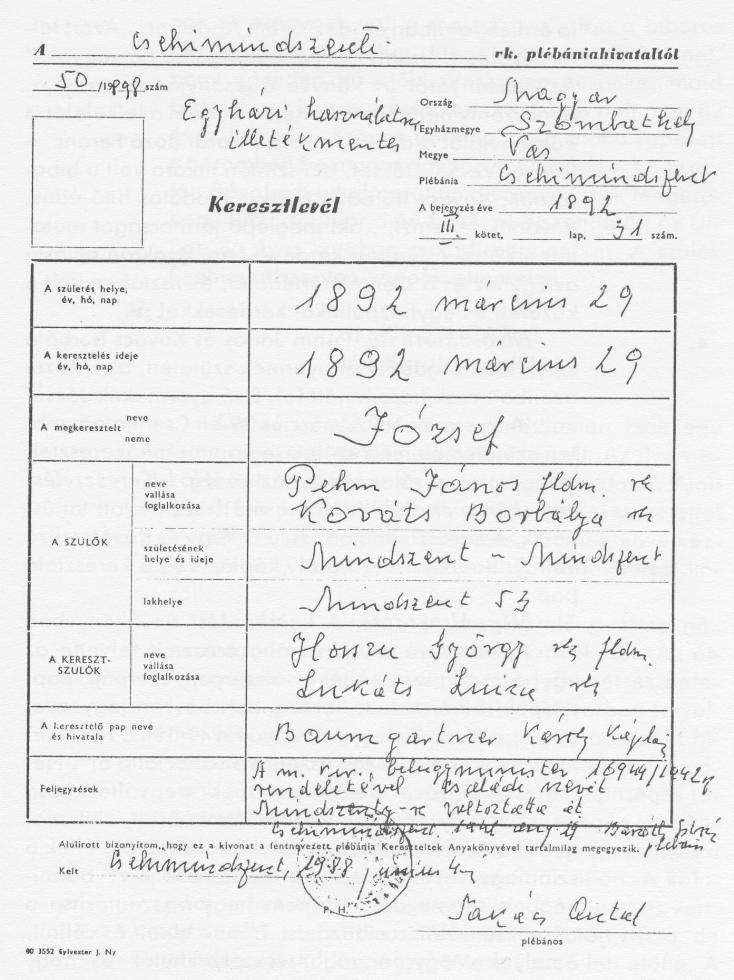 A Csehimindszenti rk. plébániahivataltól
50 /1988 szám
Egyházi használatra
illetékmentes
Ország Magyar
Egyházmegye Szombathely
Megye Vas
Plébánia Csehimindszent
Keresztlevél
A bejegyzés éve 1892
III. kötet, lap, 31 szám.
A születés helye,
év, hó, nap
1892 március 29
A keresztelés ideje
év, hó, nap
1892 március 29
A megkeresztelt neve
neme
József
A SZÜLŐK
neve
vallása
foglalkozása
Pehm János fldm. rk
Kováts Borbálya rk
születésének
helye és ideje
Mindszent - Mindszent
lakhelye
Mindszent 53
A KERESZT-
SZÜLŐK
neve
vallása
foglalkozása
Hosszu György rk fldm.
Lukáts rk
A keresztelő pap neve
és hivatala
Baumgartner Károly káplán
Feljegyzések
A m. kir. belügyminiszter 16944/1942
rendeletével családi nevét
Mindszenty-re változtatta át
Csehimindszent, 1942 aug 19
plébános
Alulírott bizonyítom, hogy ez a kivonat a fentnevezett plébánia Kereszteltek Anyakönyvével tartalmilag megegyezik.
Kelt Csehimindszent, 1988 június 4
P. H.
Takács Antal
plébános
60 3552 Sylvester J. Ny